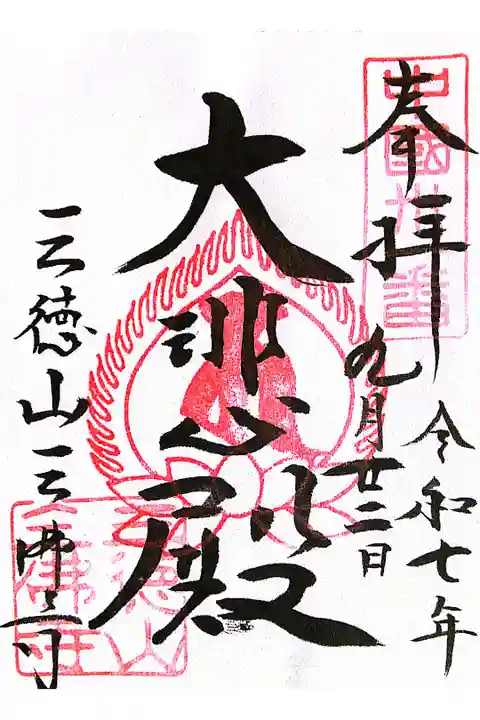 奉拝
令和七年
九月廿二日
大悲殿
三徳山三佛寺
中國卅一番
三徳山
三佛寺